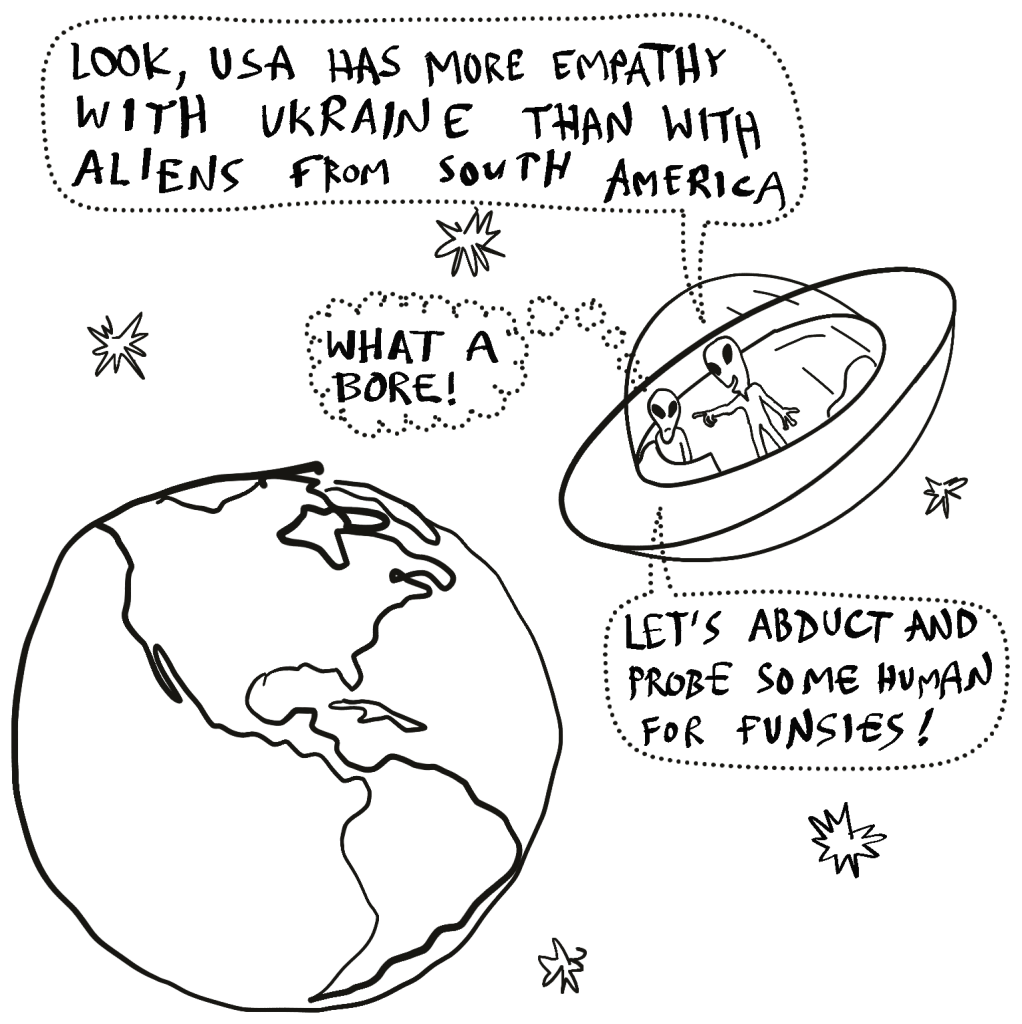 LOOK, USA HAS MORE EMPATHY
WITH UKRAINE THAN WITH
ALIENS FROM SOUTH AMERICA
WHAT A
BORE!
LET'S ABDUCT AND
PROBE SOME HUMAN
FOR FUNSIES!